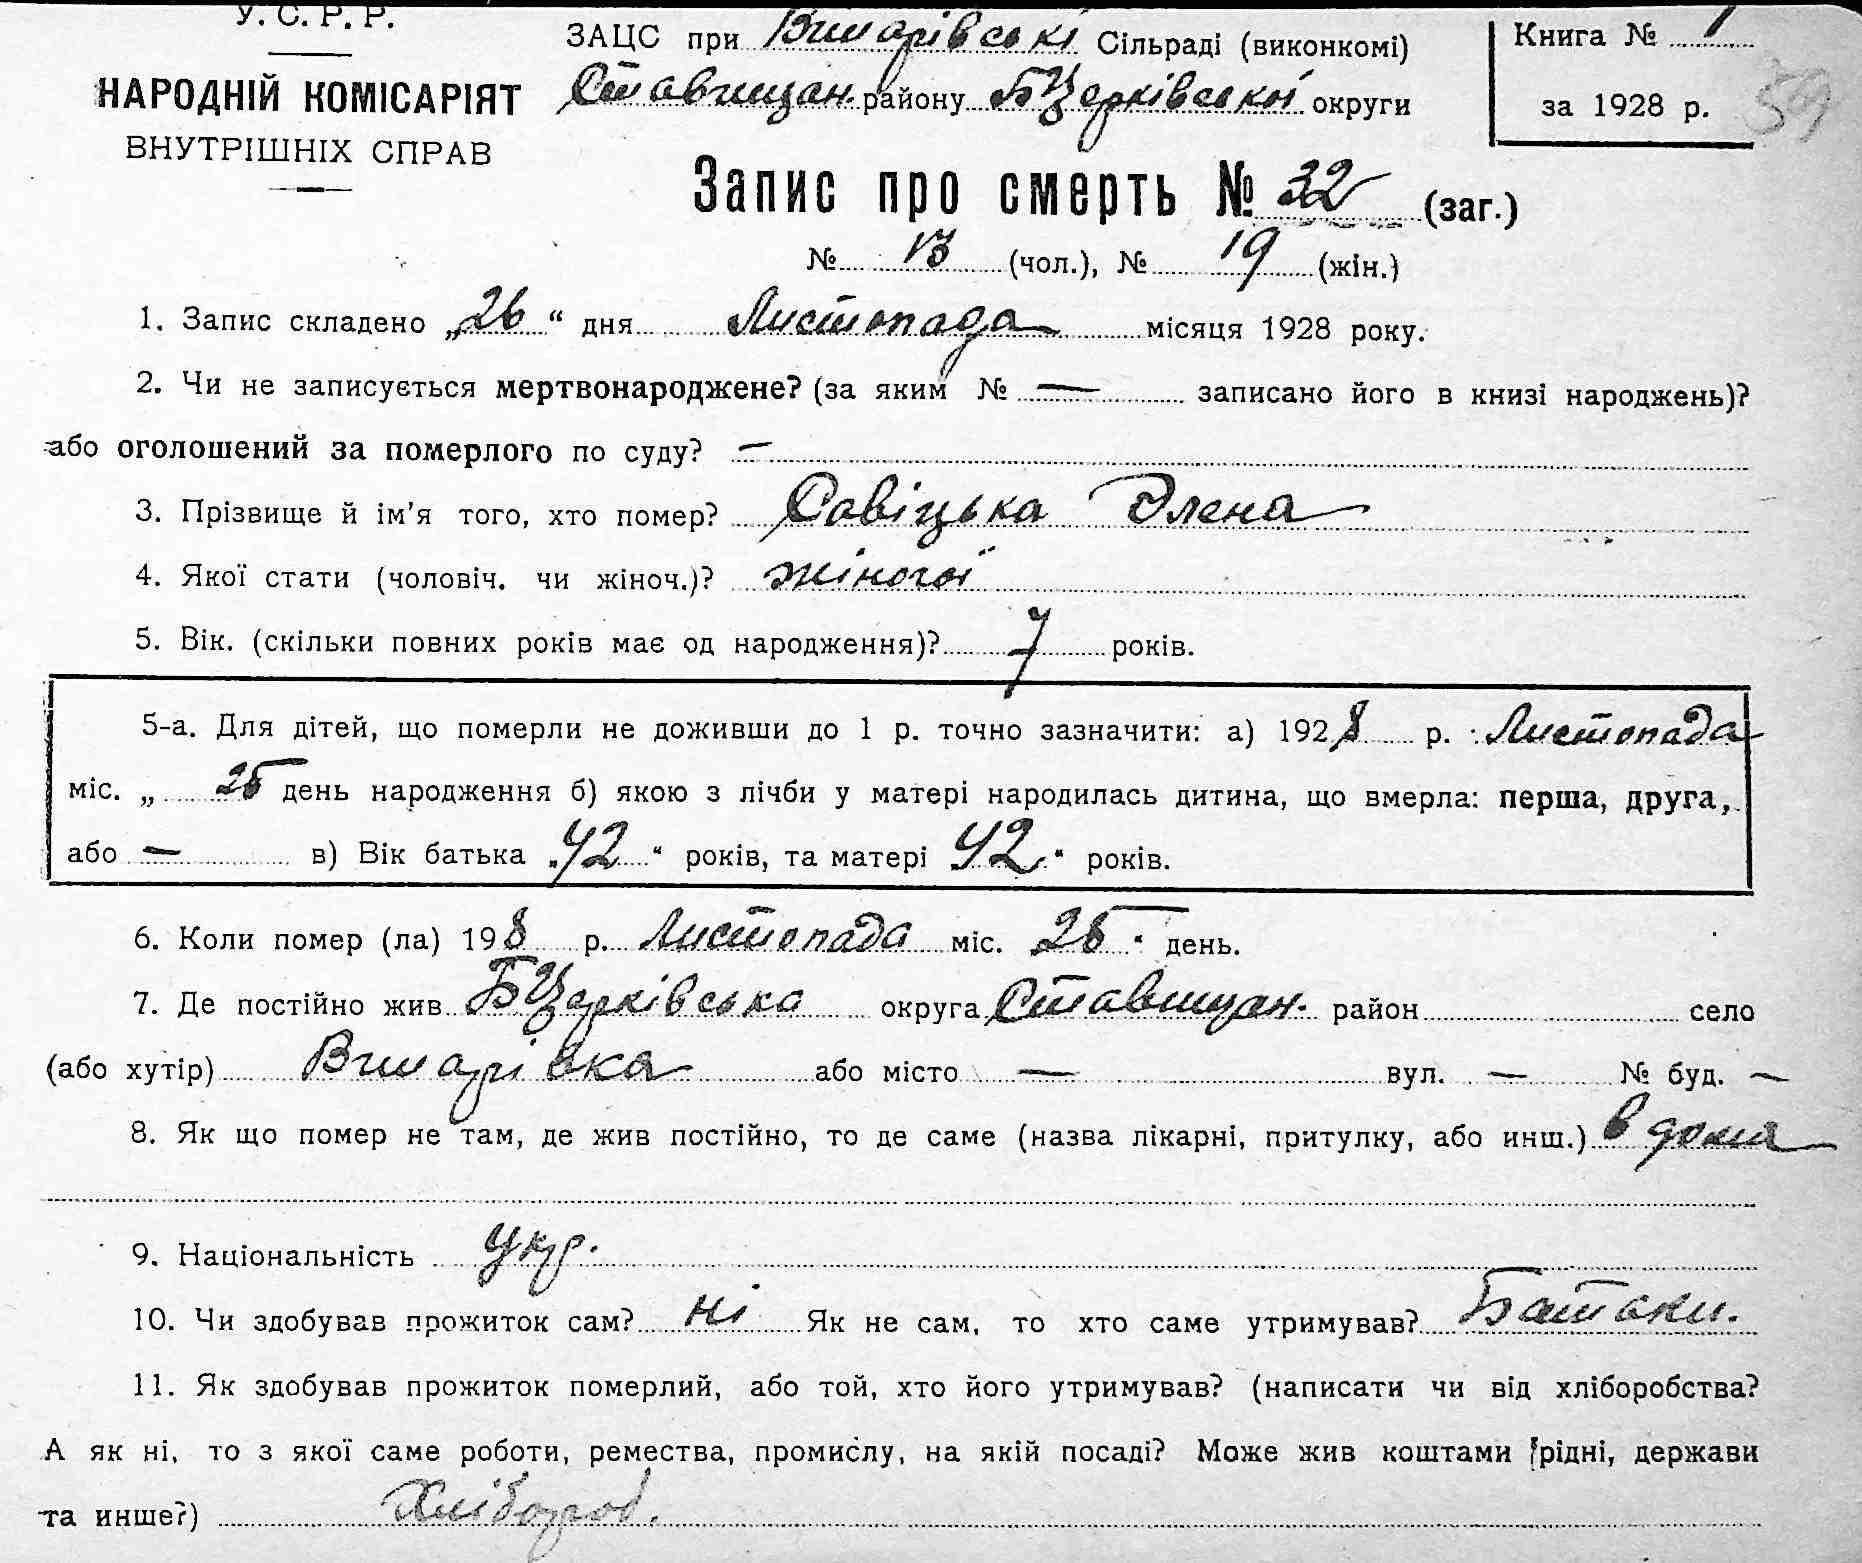 У. С. Р. Р.
НАРОДНІЙ КОМІСАРІЯТ
ВНУТРІШНІХ СПРАВ
ЗАЦС при Вишарівські Сільраді (виконкомі)
Ставищан. району БЦерківської округи
Книга № 1
за 1928 р.
59
Запис про смерть № 32 (заг.)
№ 13 (чол.), № 19 (жін.)
1. Запис складено „26“ дня Листопада місяця 1928 року.
2. Чи не записується мертвонароджене? (за яким № — записано його в книзі народжень)?
або оголошений за померлого по суду? —
3. Прізвище й ім'я того, хто помер? Савіцька Олена
4. Якої стати (чоловіч. чи жіноч.)? жіночої
5. Вік. (скільки повних років має од народження)? 7 років.
5-а. Для дітей, що померли не доживши до 1 р. точно зазначити: а) 1928 р. Листопада
міс. „ 25 день народження б) якою з лічби у матері народилась дитина, що вмерла: перша, друга,
або — в) Вік батька „42“ років, та матері 42“ років.
6. Коли помер (ла) 198 р. Листопада міс. 25 день.
7. Де постійно жив БЦерківська округа Ставищан. район село
(або хутір) Вишарівка або місто — вул. — № буд. —
8. Як що помер не там, де жив постійно, то де саме (назва лікарні, притулку, або инш.) в дома
9. Національність укр.
10. Чи здобував прожиток сам? ні Як не сам, то хто саме утримував? Батьки.
11. Як здобував прожиток померлий, або той, хто його утримував? (написати чи від хліборобства?
А як ні, то з якої саме роботи, ремества, промислу, на якій посаді? Може жив коштами рідні, держави
та инше?) Хлібороб.